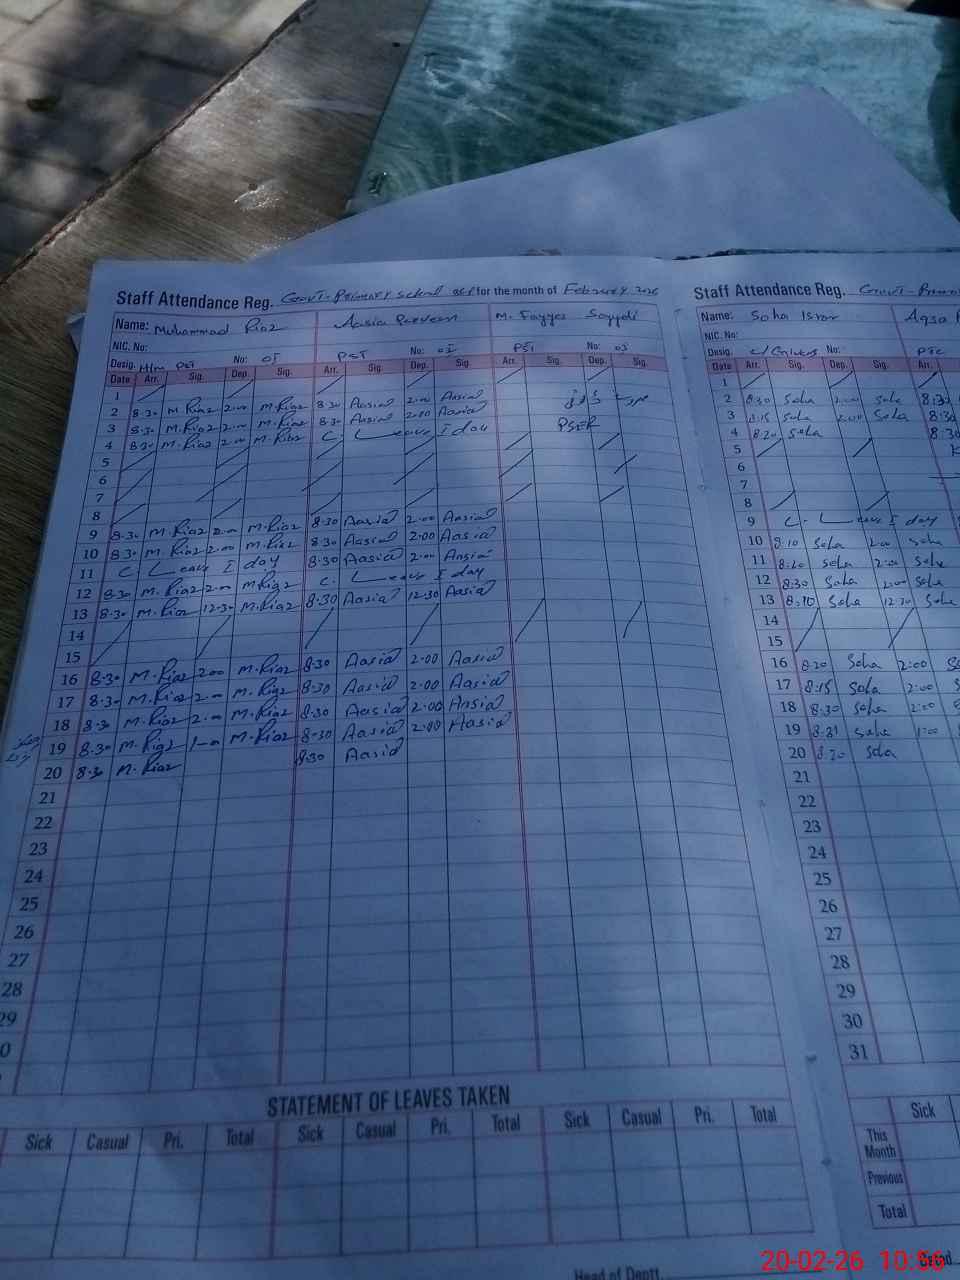 Staff Attendance Reg. Govt. Primary School for the month of February 2026
Name: Muhammad Riaz Aasia Parveen M. Fayyaz
NIC. No:
Desig. PST No: 01 PST No: 01 PST No: 01
Date Arr. Sig. Dep. Sig. Arr. Sig. Dep. Sig. Arr. Sig. Dep. Sig.
1
2 8.30 M.Riaz 2.00 M.Riaz 8.30 Aasia 2.00 Aasia
3 8.30 M.Riaz 2.00 M.Riaz 8.30 Aasia 2.00 Aasia PSER
4 8.30 M.Riaz 2.00 M.Riaz C. Leave I day
5
6
7
8
9 8.30 M.Riaz 2.00 M.Riaz 8.30 Aasia 2.00 Aasia
10 8.30 M.Riaz 2.00 M.Riaz 8.30 Aasia 2.00 Aasia
11 C. Leave I day 8.30 Aasia 2.00 Aasia
12 8.30 M.Riaz 2.00 M.Riaz C. Leave I day
13 8.30 M.Riaz 12.30 M.Riaz 8.30 Aasia 12.30 Aasia
14
15
16 8.30 M.Riaz 2.00 M.Riaz 8.30 Aasia 2.00 Aasia
17 8.30 M.Riaz 2.00 M.Riaz 8.30 Aasia 2.00 Aasia
18 8.30 M.Riaz 2.00 M.Riaz 8.30 Aasia 2.00 Aasia
19 8.30 M.Riaz 1.00 M.Riaz 8.30 Aasia 2.00 Aasia
20 8.30 M.Riaz 8.30 Aasia
21
22
23
24
25
26
27
28
29
0
STATEMENT OF LEAVES TAKEN
Sick Casual Pri. Total Sick Casual Pri. Total Sick Casual Pri. Total
Head of Deptt.
Staff Attendance Reg. Govt. Prima
Name: Soha Israr Aqsa
NIC. No:
Desig. No:
Date Arr. Sig. Dep. Sig. Arr.
1
2 8:30 Soha 2:00 Soha 8:30
3 8:15 Soha 2:00 Soha 8:30
4 8:20 Soha 8:30
5
6
7
8
9 C. Leave I day
10 8:10 Soha 2:00 Soha
11 8:20 Soha 2:00 Soha
12 8:30 Soha 2:00 Soha
13 Soha 12:30 Soha
14
15
16 8:20 Soha 2:00
17 8:15 Soha 2:00
18 8:30 Soha 2:00
19 8:31 Soha 1:00
20 8:20 Soha
21
22
23
24
25
26
27
28
29
30
31
Sick
This Month
Previous
Total
20-02-26 10:56